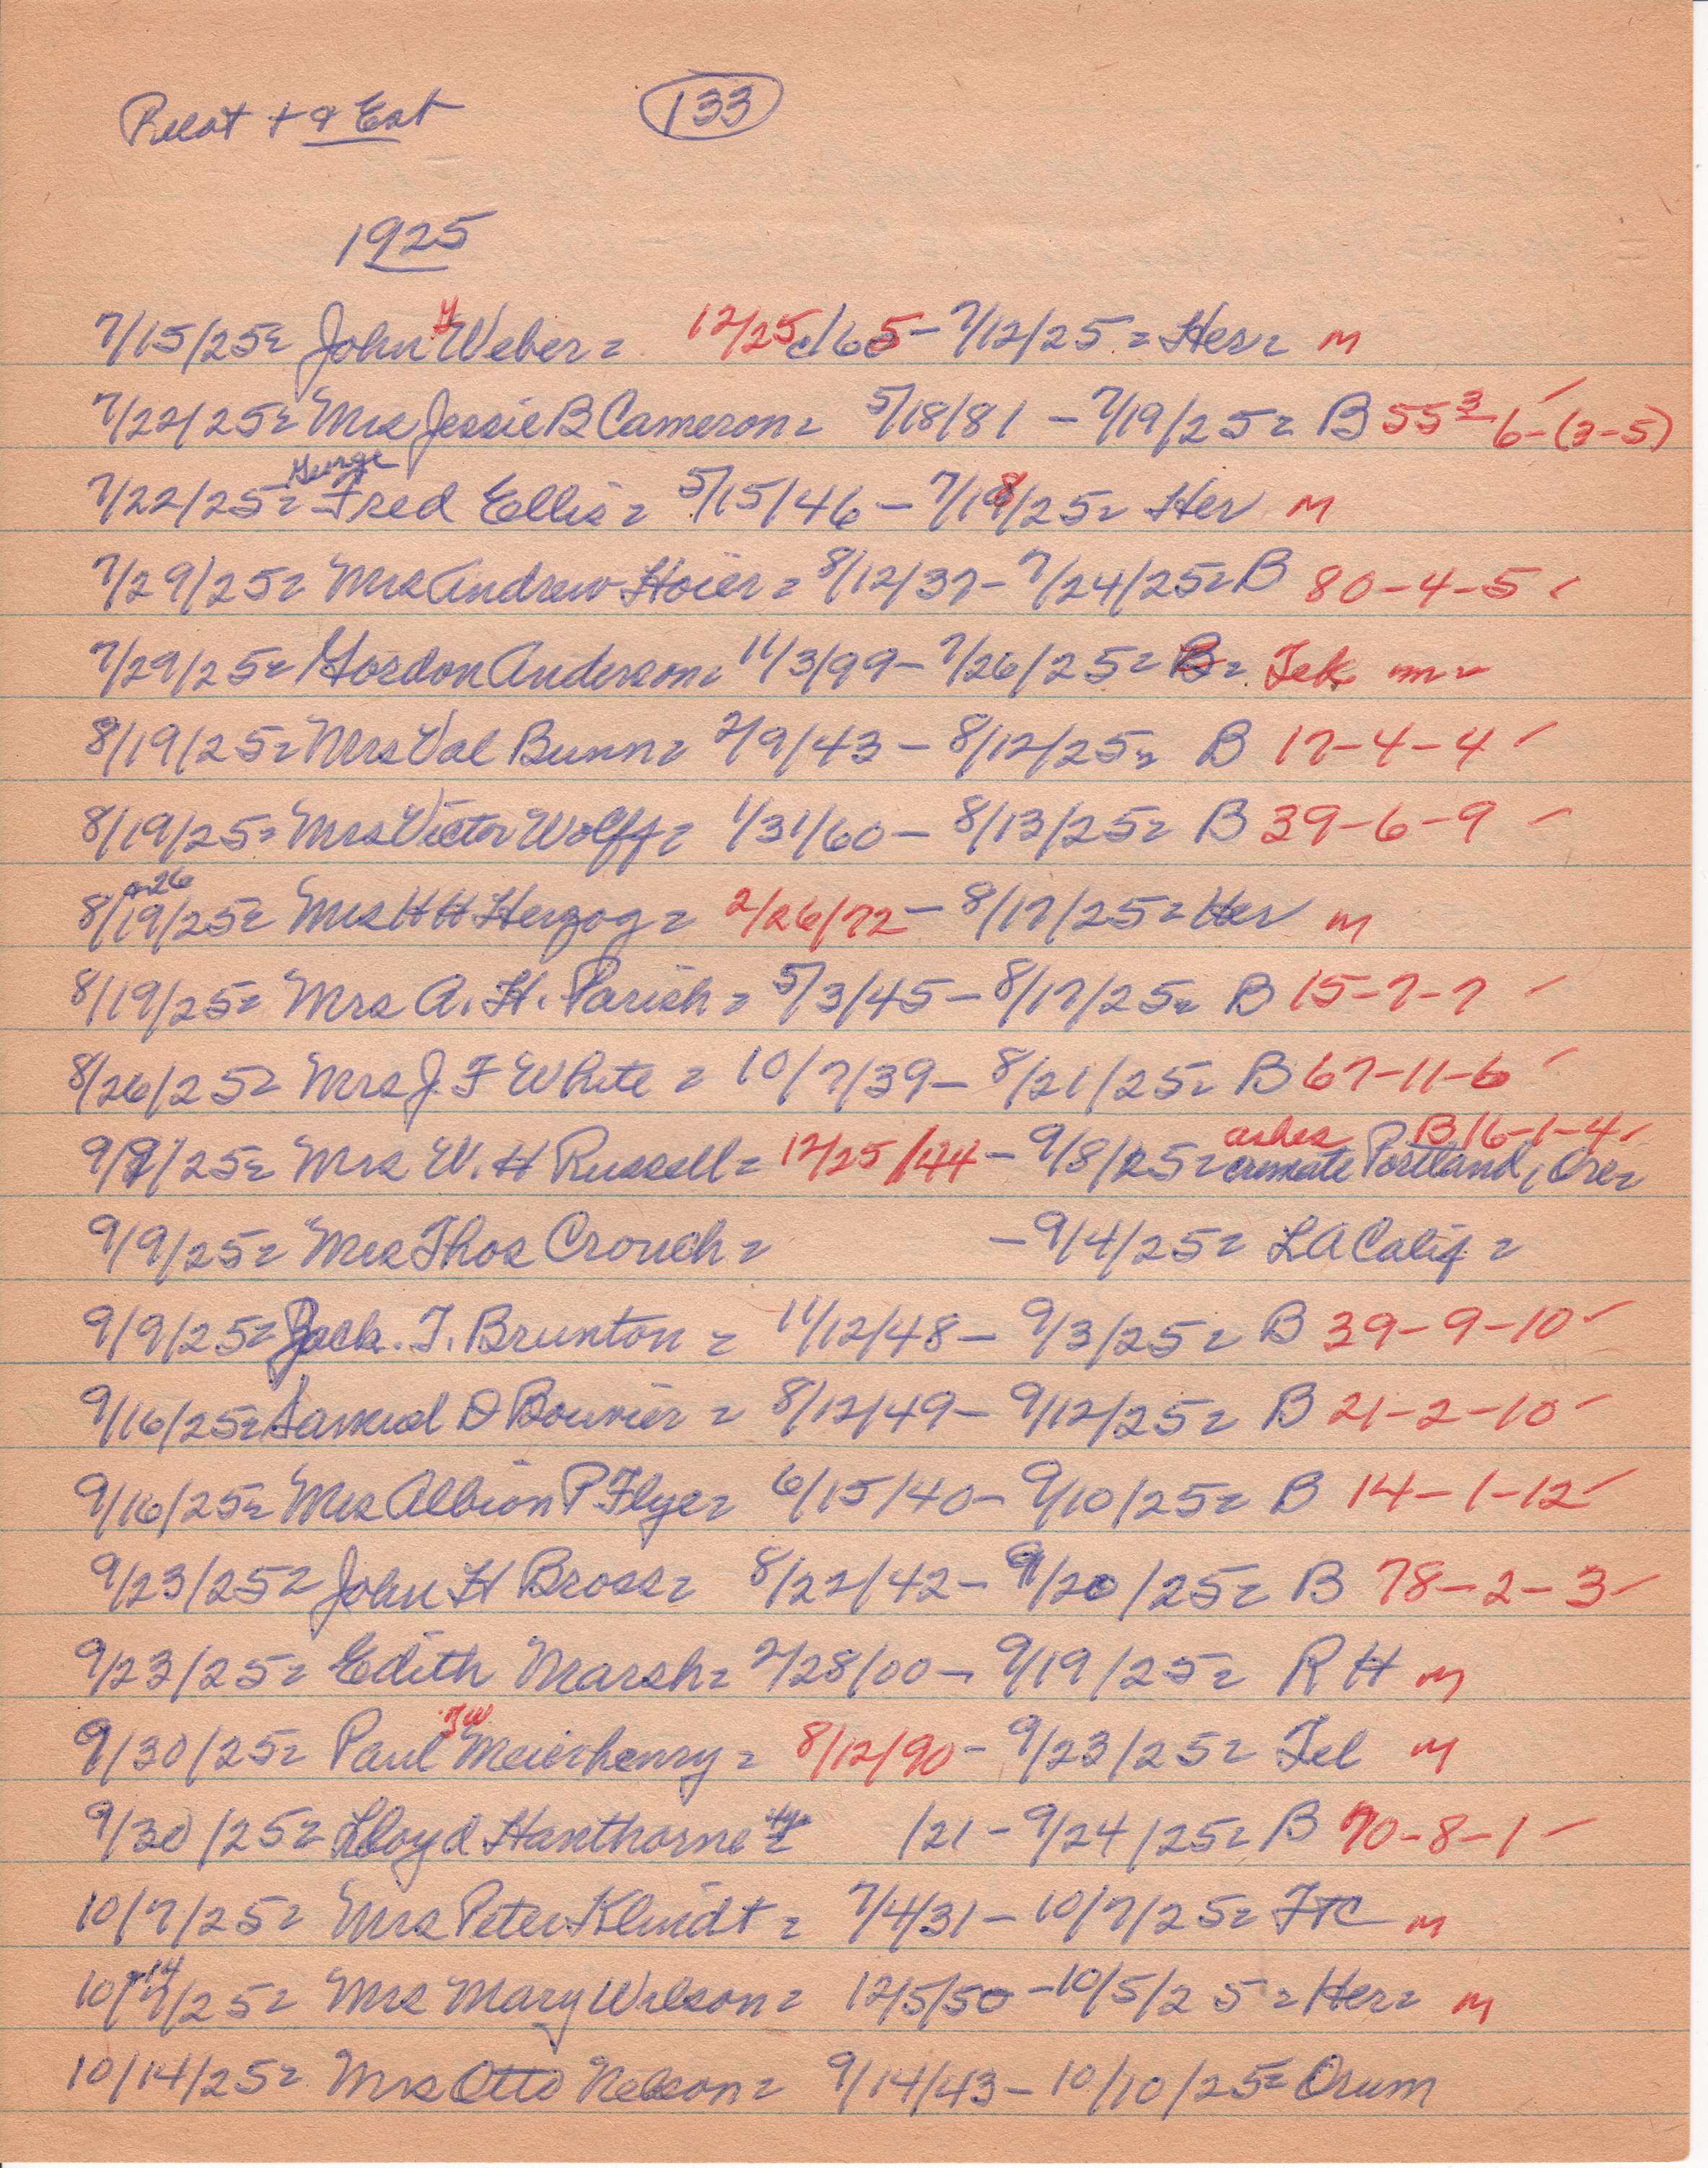 Pilot + & Ent 133
1925
7/15/25= John Y Weber= 12/25/65 - 7/12/25 = Her= M
7/22/25= Mrs Jessie B Cameron= 5/18/81 - 7/19/25= B 55 3-6-(3-5)
7/22/25= George Fred Ellis= 5/15/46 - 7/18/25= Her M
7/29/25= Mrs Andrew Hoier= 8/12/37- 7/24/25= B 80-4-5 ✓
7/29/25= Gordon Anderson= 11/3/99- 7/26/25= B= Tek m
8/19/25= Mrs Val Bunn= 2/9/43 - 8/12/25= B 17-4-4 ✓
8/19/25= Mrs Victor Wolff= 1/31/60- 8/13/25= B 39-6-9 -
8/19/25= &26 Mrs H H Herzog= 2/26/72- 8/17/25= Her M
8/19/25= Mrs A. H. Parish= 5/3/45- 8/17/25= B 15-7-7 -
8/26/25= Mrs J. F White = 10/7/39- 8/21/25= B 67-11-6 ✓
9/9/25= Mrs W. H Russell= 12/25/44- 9/8/25= cremate Portland, Ore= ashes B 16-1-4 ✓
9/9/25= Mrs Thos Crouch= -9/4/25= LA Calif =
9/9/25= Jack. T. Brunton = 11/12/48- 9/3/25= B 39-9-10 ✓
9/16/25= Samuel D Bouvier = 8/12/49- 9/12/25= B 21-2-10 -
9/16/25= Mrs Albion P Flye= 6/15/40- 9/10/25= B 14-1-12 ✓
9/23/25= John H Bross= 8/22/42- 9/20/25= B 78-2-3 -
9/23/25= Edith Marsh= 2/28/00- 9/19/25= R H M
9/30/25= Paul FW Meierhenry= 8/12/90- 9/23/25= Tek M
9/30/25= Lloyd Hanthorne 4yr= /21- 9/24/25= B 70-8-1 -
10/7/25= Mrs Peter Klindt= 7/4/31- 10/7/25= FTC M
10/7/25= &14 Mrs Mary Wilson= 12/5/50 -10/5/25= Her= M
10/14/25= Mrs Otto Nelson= 9/14/43- 10/10/25= Orum